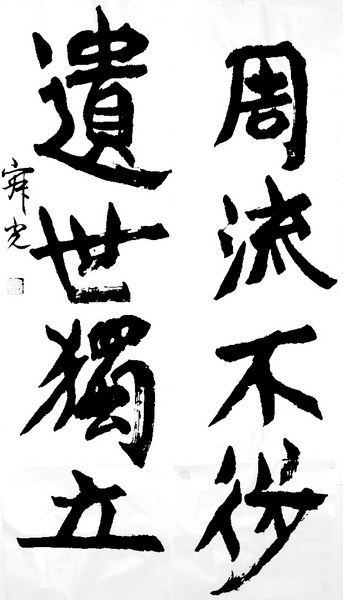 周流不
遺世獨立
光